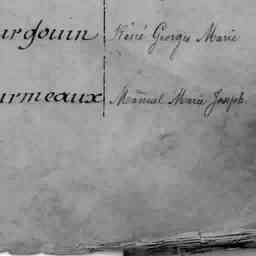 urgouin René Georges Marie
urmeaux Manuel Marie Joseph.